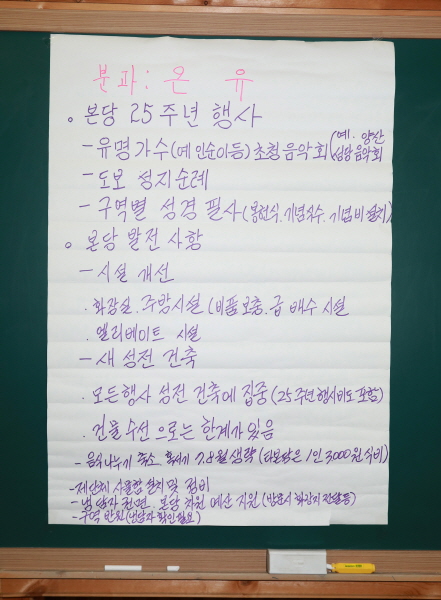 분과: 온 유
o 본당 25주년 행사
- 유명가수(예 인순이등) 초청 음악회 (예. 양산
성당음악회
- 도보 성지순례
- 구역별 성경 필사 (봉헌식. 기념식수. 기념비 설치)
o 본당 발전 사항
- 시설 개선
. 화장실. 주방시설 (비품 보충. 급 배수 시설
. 엘리베이트 시설
- 새 성전 건축
. 모든행사 성전 건축에 집중 (25주년행사비도 포함)
. 건물 수선 으로는 한계가 있음
- 음식나누기 축소. 혹서기 7.8월 생략 (타본당은 1인 3000원 식비)
- 및 정비
- 냉담자 방문 본당 차원 예산 지원 (방문시 화장지 전달등)
- 구역 반원 (냉담자 확인필요)